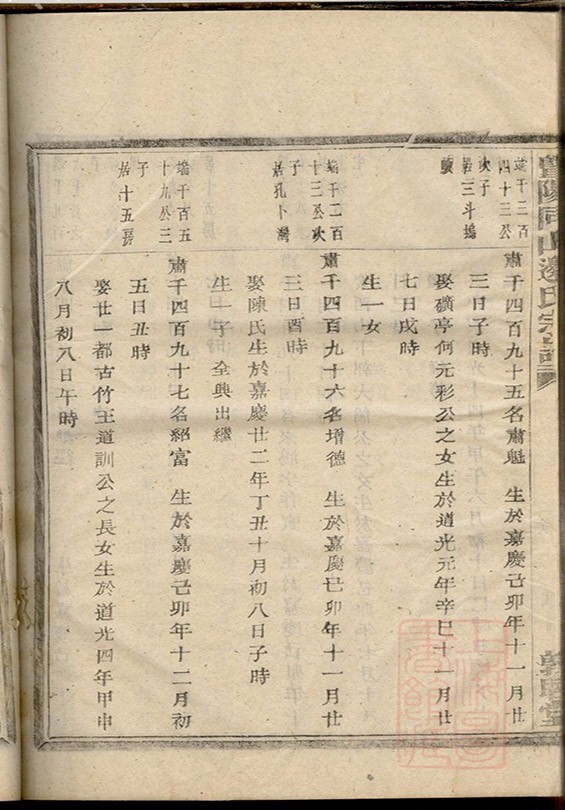 暨陽同山邊氏宗譜
端千二百
四十三公
次子
居三斗塢
肅千四百九十五名肅魁 生於嘉慶己卯年十一月廿
三日子時
娶礦亭何元彩公之女生於道光元年辛巳十一月廿
七日戌時
生一女
端千二百
十三公次
子
居孔卜灣
肅千四百九十六名增德 生於嘉慶己卯年十一月廿
三日酉時
娶陳氏生於嘉慶廿二年丁丑十月初八日子時
生一子 全興出繼
端千百五
十九公三
子
居十五房
肅千四百九十七名紹富 生於嘉慶己卯年十二月初
五日丑時
娶廿一都古竹王道訓公之長女生於道光四年甲申
八月初八日午時